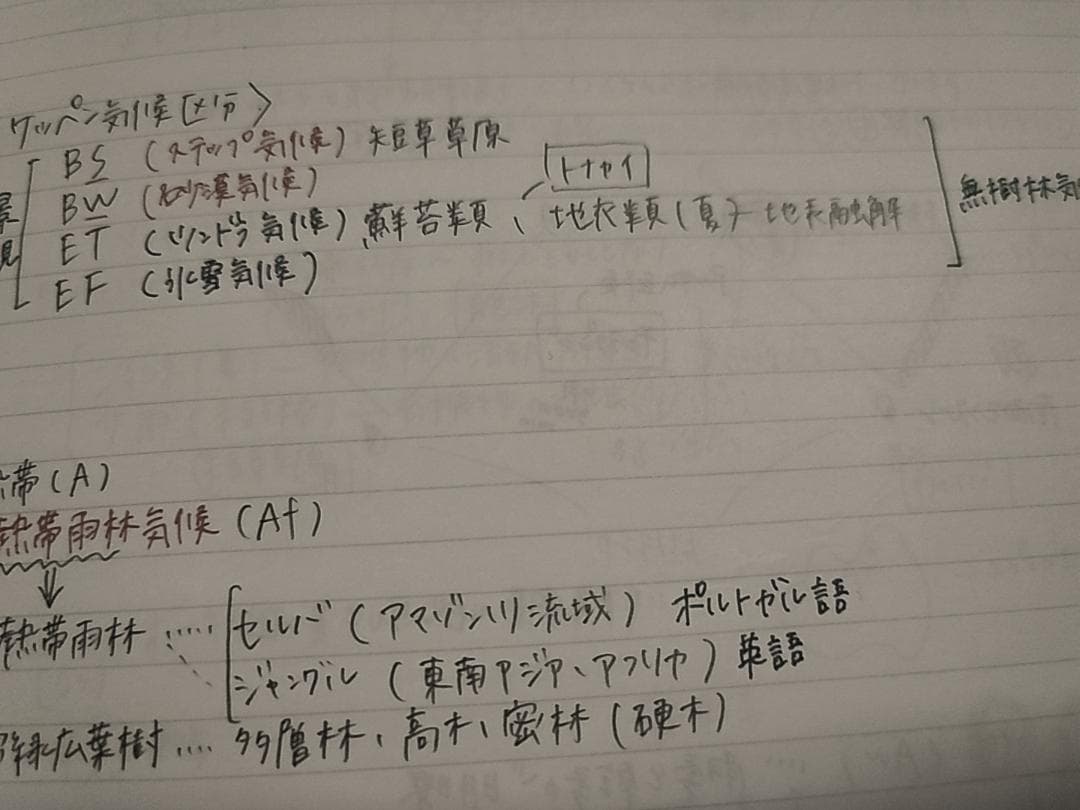 ケッペン気候区分〉
BS (ステップ気候) 短草草原
トナカイ
BW (砂漠気候)
ET (ツンドラ気候) 蘚苔類、地衣類(夏)- 地表融解
無樹林気
EF (氷雪気候)
帯(A)
熱帯雨林気候 (Af)
熱帯雨林 ..... セルバ (アマゾン川流域) ポルトガル語
ジャングル (東南アジア、アフリカ) 英語
緑広葉樹 .... 多層林、高木、密林 (硬木)